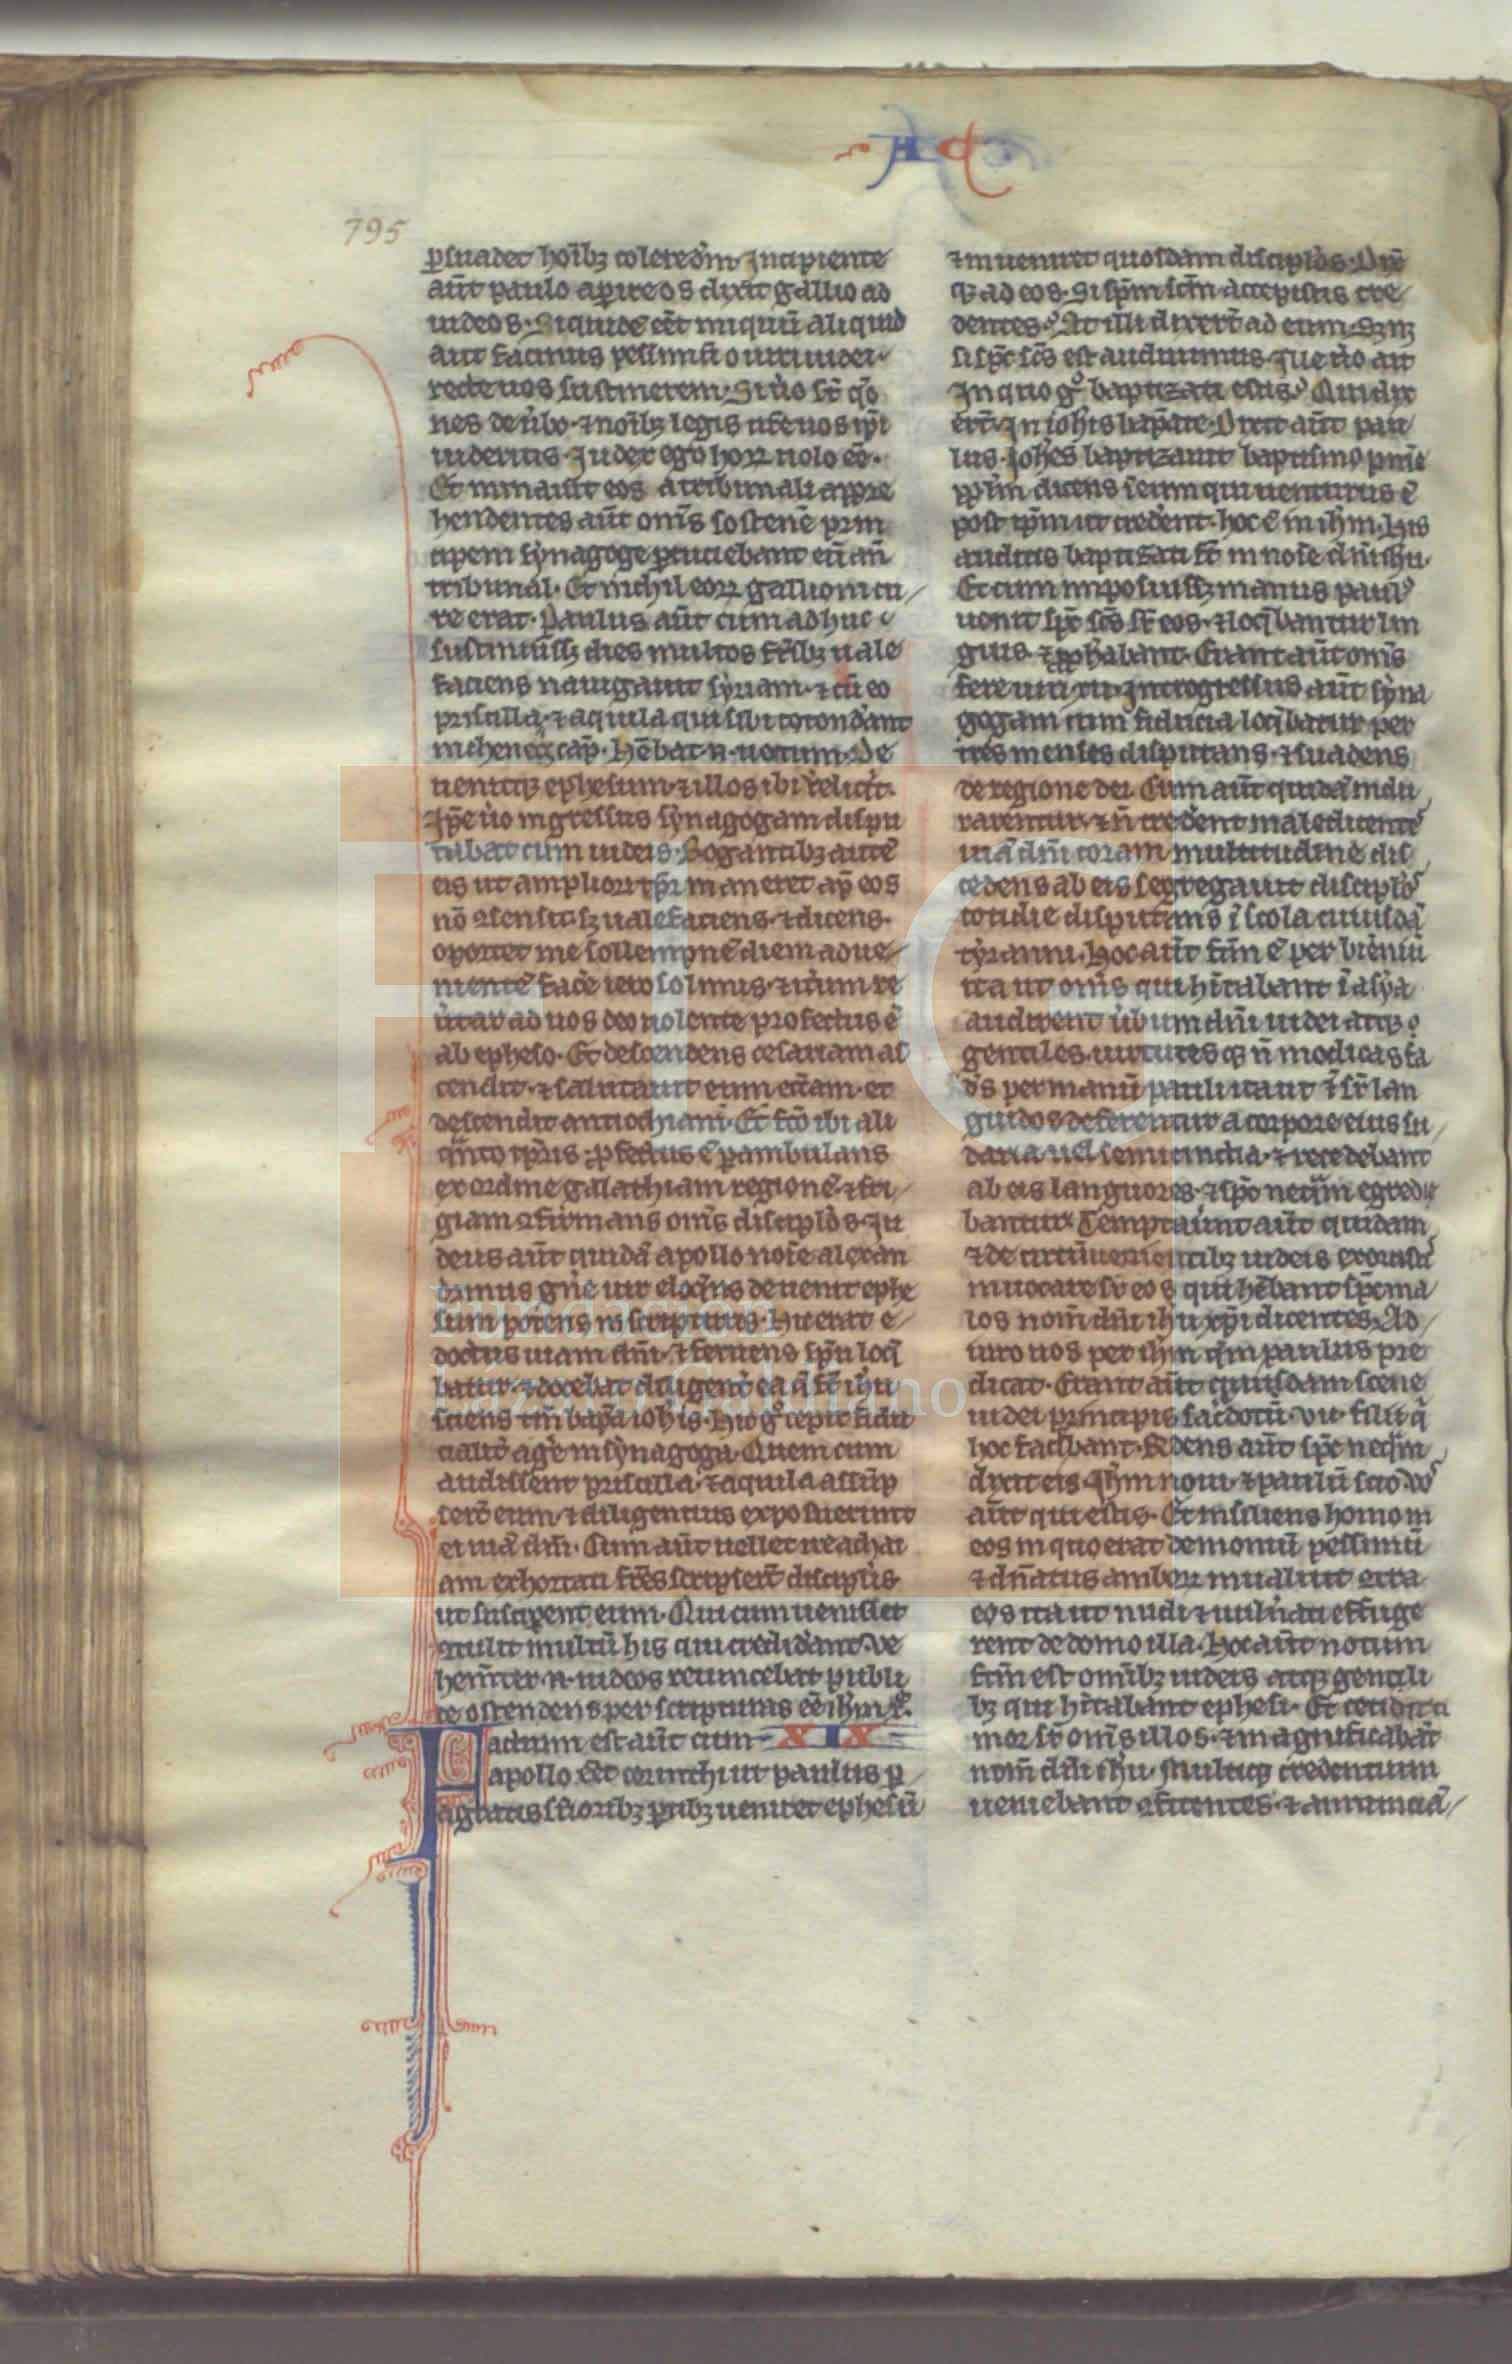 Ac
795
ꝑsuadet hoı̅bꝫ colere dm̅. Incipiente
aut̅ paulo aꝑire os dixit gallio ad
iudeos. Siquide̅ eēt iniquu̅ aliquid
aut facinus pessimu̅ o uiri iudei.
recte uos sustinerem. Si u̓o st̅ q̅o
nes de u̓bo ⁊ noı̅bꝫ legis ur̅e uos ip̅i
uideritis. Iudex ego hoꝝ nolo eē.
Et minauit eos a tribunali appre
hendentes aut̅ om̅s sostene̅ prin
cipem synagoge ꝑcutiebant eu̅ an̅
tribunal. Et nichil eoꝝ gallioni cu
re erat. Paulus aut̅ cum adhuc
sustinuissꝫ dies multos fr̅ibꝫ uale
faciens nauigauit syriam ⁊ cu̅ eo
priscilla ⁊ aquila qui sibi totond̓ant
in chencris cap̅. Hēbat n̅ uotum. De
uenitqꝫ ephesum ⁊ illos ibi reliqt̓.
Ip̅e u̓o ingressus synagogam dispu
tabat cum iudeis. Rogantibꝫ aute̅
eis ut ampliori tp̅r maneret ap̅ eos
no̅ ꝯsensit. sꝫ ualefaciens ⁊ dicens.
oportet me sollempne̅ diem adue
niente̅ face̓ ierosolimis ⁊ it̓um re
u̓tar ad uos deo uolente profectus e̅
ab epheso. Et descendens cesariam as
cendit ⁊ salutauit eum ecc̅am et
descendit antiochiam. Et fc̅o ibi ali
q̅nto tp̅ris ꝓfectus e̅ ꝑambulans
ex ordine galathiam regione̅ ⁊ fri
giam ꝯfirmans om̅s disciplo̓s. Iu
deus aut̅ quida̅ apollo noı̅e alexan
drinus gn̓e uir eloq̅ns deuenit ephe
sum potens in scripturis. Hic erat e
doctus uiam dn̅i. ⁊ feruens sp̅u loq̅
batur ⁊ docebat diligent̓ ea q̅ st̅ ih̅u
sciens tm̅ bap̅a ioh̅is. Hic gͦ cepit fidu
cialit̓ age̓ in synagoga. Quem cum
audissent priscilla ⁊ aquila assu̅p
serūt eum ⁊ diligentius exposuerunt
ei uia̅ dn̅i. Cum aut̅ uellet ire achai
am exhortati fr̅es scripserūt discipl̓is
ut suscipent eum. Qui cum uenisset
ꝯtulit multu̅ his qui credid̓ant. Ve
hem̅ter n̅ iudeos reuincebat publi
ce ostendens per scripturas eē ih̅m xp̅.
Factum est aut̅ cum XIX
apollo eēt corinthi ut paulus ꝑ
agratis suꝑioribꝫ ꝑtibꝫ ueniret ephesu̅
⁊ inueniret quosdam disciplo̓s. Dix̅
qꝫ ad eos. Si sp̅m sc̅m accepistis cre
dentes? At illi dixert̅ ad eum. Sꝫ nꝫ
si sp̅c sc̅s est audiuimus. Ille u̓o ait
In quo gͦ baptizati estis? Qui dix
ert̅. In ioh̅is bap̅ate. Dixit aut̅ pau
lus. Ioh̅es baptizauit baptismo pnı̅e
pp̅lm dicens i eum qui uenturus e̅
post ip̅m ut cred̓ent. hoc e̅ in ih̅m. His
auditis baptizati st̅ in noı̅e dn̅i ih̅u.
Et cum imposuissꝫ manus paul᷒
uenit sp̅c sc̅s sr̅ eos ⁊ loq̅bantur lin
guis ⁊ ꝓphabant. Erant aut̅ om̅s
fere uiri xii. Introgressus aut̅ syna
gogam cum fiducia loq̅batur per
tres menses disputans ⁊ suadens
de regione dei. Cum aut̅ quida̅ indu
rarentur ⁊ n̅ cred̓ent maledicente̅
uia̅ dn̅i coram multitudine dis
cedens ab eis segregauit disciplo̓s
cotidie disputans i̅ scola cuiusda̅
tyranni. Hoc aut̅ fc̅m e̅ per bieniu̅
ita ut om̅s qui hı̅tabant i̅ asya
audirent u̓bum dn̅i iudei atqꝫ
gentiles. uirtutes qꝫ n̅ modicas fa
ds̅ per manu̅ pauli ita ut ⁊ sr̅ lan
guidos deferentur a corpore eius su
daria uel semicinctia ⁊ recedebant
ab eis languores ⁊ sp̅c neq̅m egredie
bantur. Temptau̓unt aut̅ quidam
⁊ de circu̅uenientibꝫ iudeis exorcist̅
inuocare sr̅ eos qui hēbant sp̅c ma
los nom̅ dn̅i ih̅u xp̅i dicentes. Ad
iuro uos per ih̅m q̅m paulus pre
dicat. Erant aut̅ cuiusdam sceue
iudei principis sac̓dotu̅ .vii. filii q̅
hoc faciebant. Rn̅dens aut̅ sp̅c neq̅m
dixit eis. Ih̅m noui ⁊ paulu̅ scio. Vos
aut̅ qui estis. Et insiliens homo in
eos in quo erat demoniu̅ pessimu̅
⁊ dn̅atus amboꝝ inualuit ꝯtra
eos ita ut nudi ⁊ uuln̓ati effuge
rent de domo illa. Hoc aut̅ notum
fc̅m est omı̅bꝫ iudeis atqꝫ gentili
bꝫ qui hı̅tabant ephesi. Et cecidit ti
mor sr̅ om̅s illos. ⁊ magnificabat̅
nom̅ dn̅i ih̅u. Multiqꝫ credentium
ueniebant ꝯfitentes ⁊ annuncia̅
FLG
Fundación
Lázaro Galdiano